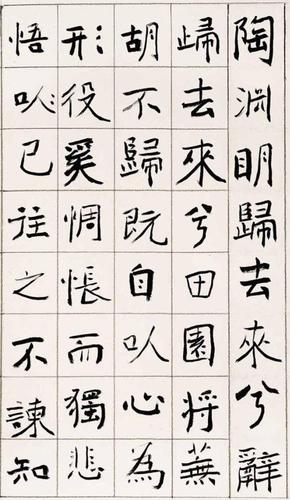 陶渊明歸去來兮辭
歸去來兮田園將蕪
胡不歸既自以心為
形役奚惆悵而獨悲
悟以已往之不諫知